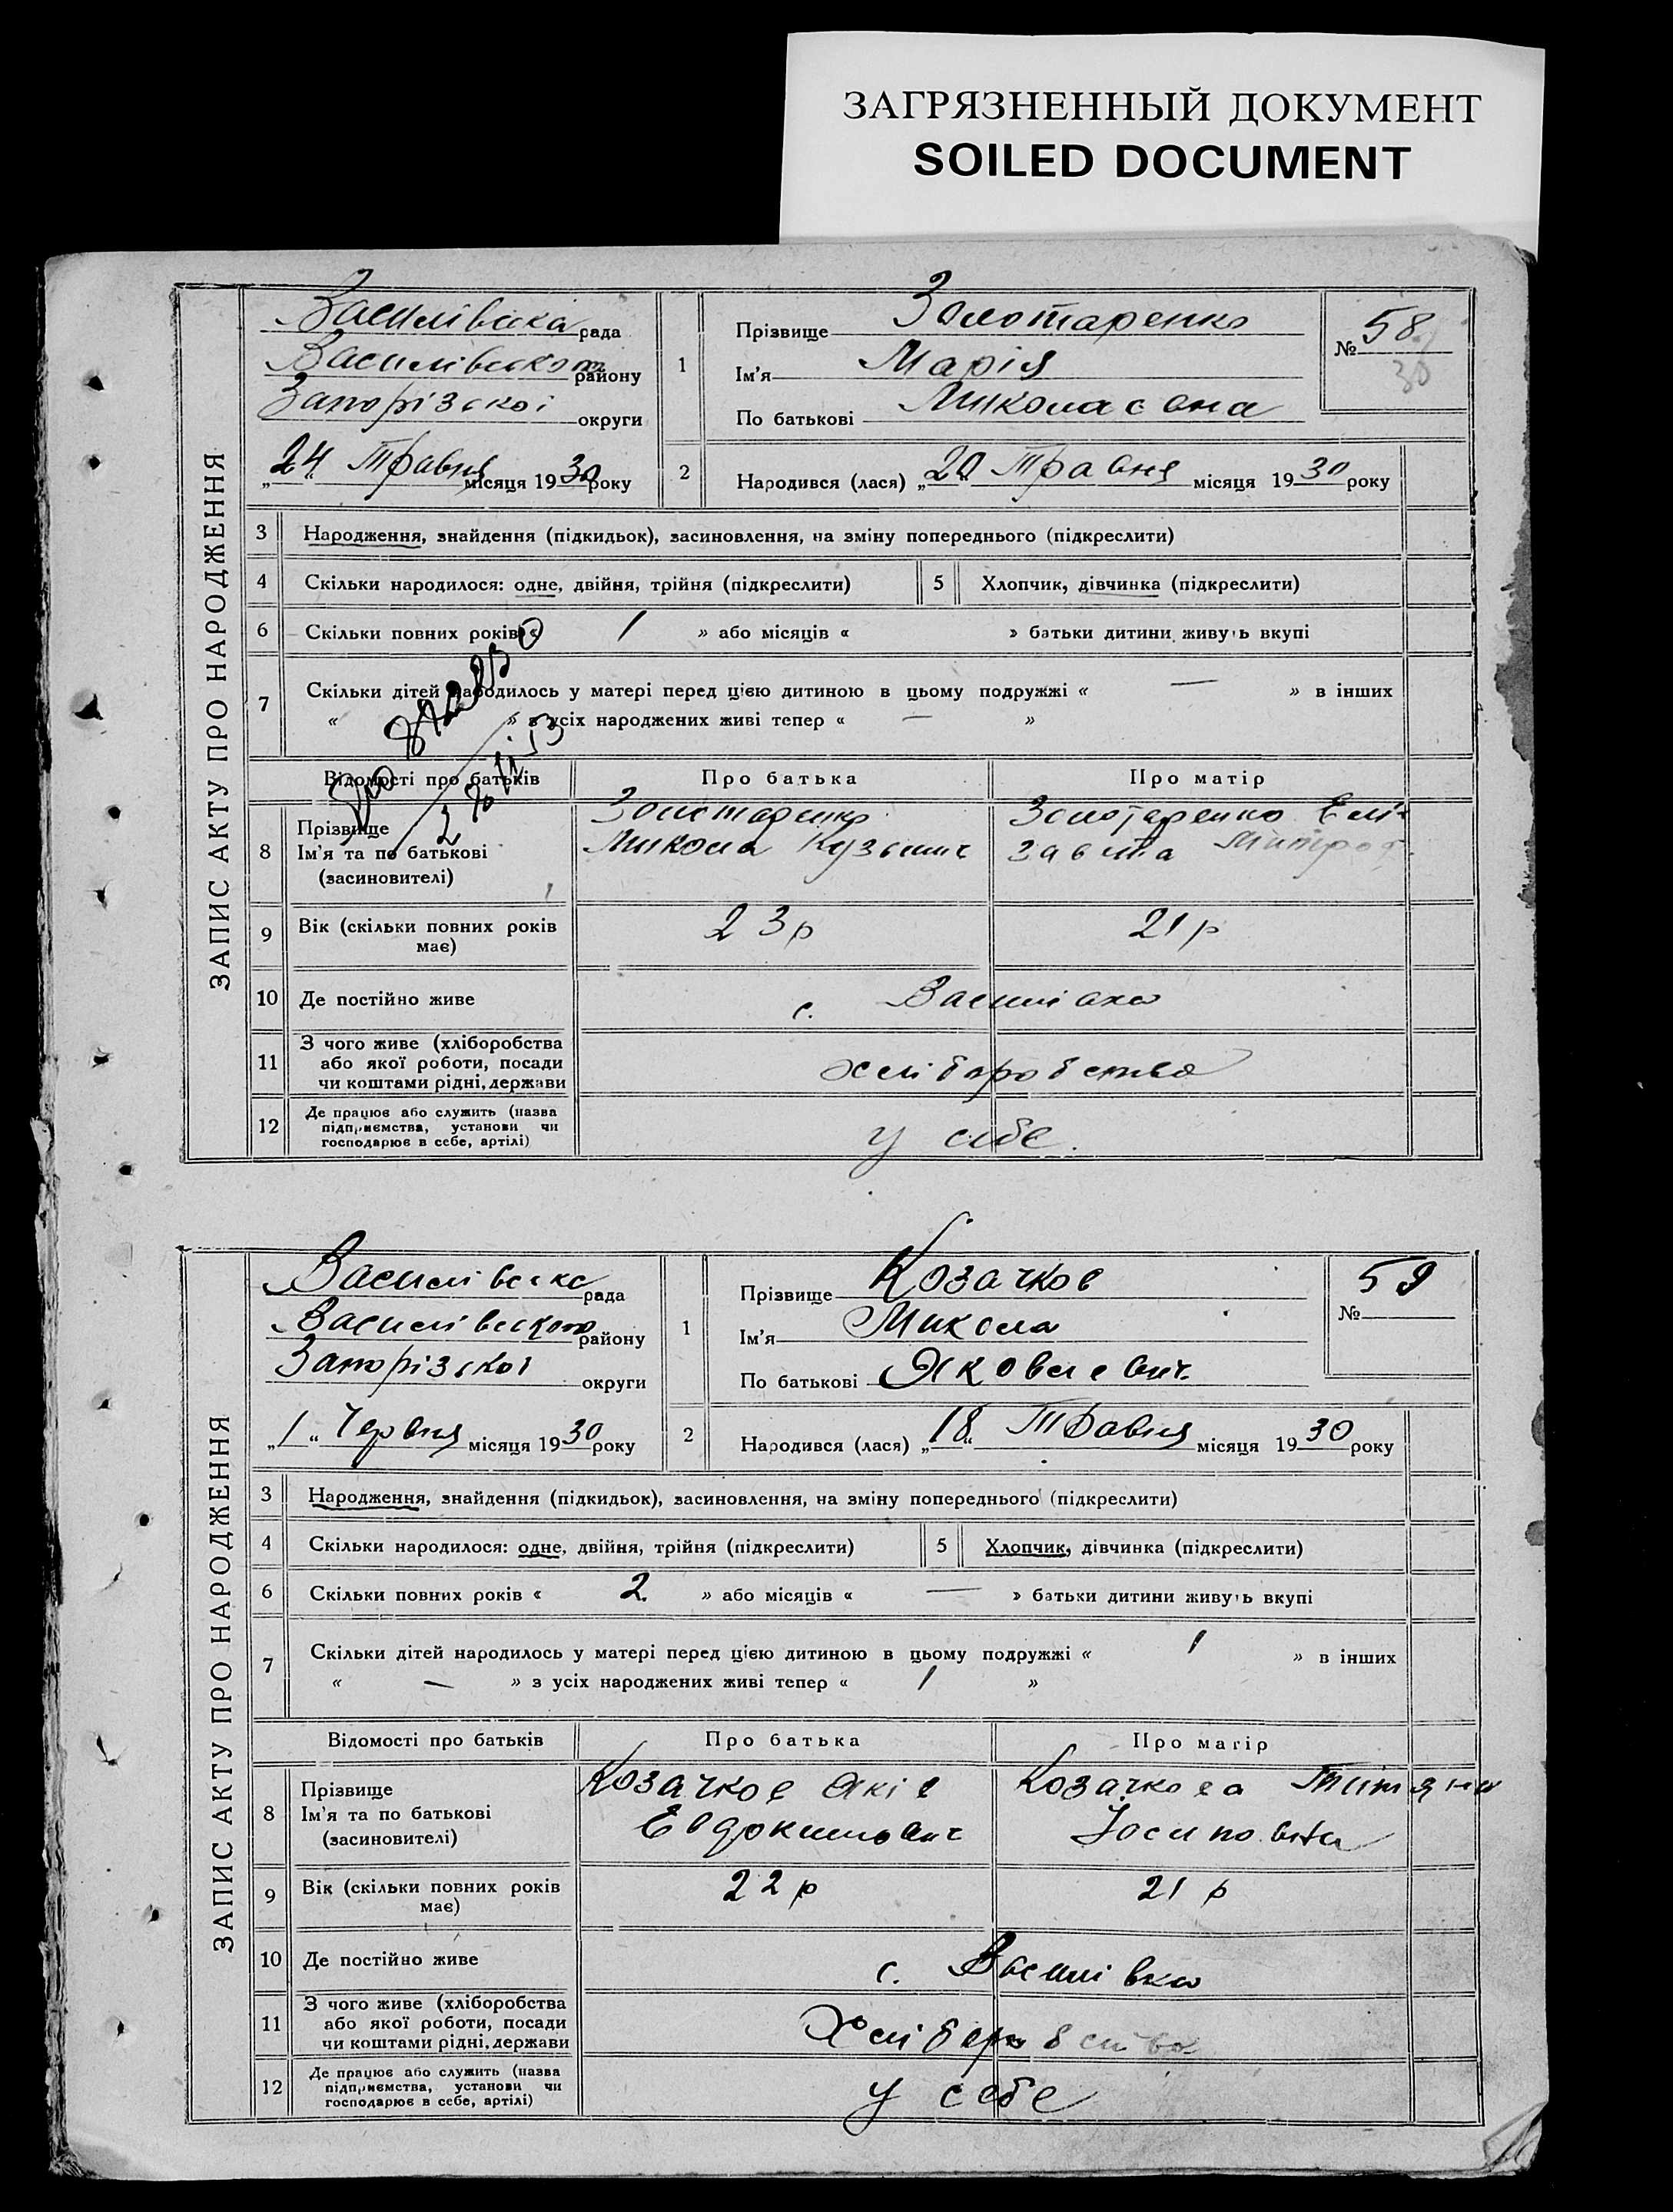 ЗАГРЯЗНЕННЫЙ ДОКУМЕНТ
SOILED DOCUMENT
ЗАПИС АКТУ ПРО НАРОДЖЕННЯ
Василівська рада
Василівского району
Запорізскоі округи
„24“ Травня місяця 1930 року
1
Прізвище Золотаренко
Ім'я Марія
По батькові Миколаєвна
№ 58
30
2
Народився (лася) „20“ Травня місяця 1930 року
3 Народження, знайдення (підкидьок), засиновлення, на зміну попереднього (підкреслити)
4 Скільки народилося: одне, двійня, трійня (підкреслити) 5 Хлопчик, дівчинка (підкреслити)
6 Скільки повних років « 1 » або місяців « » батьки дитини живуть вкупі
7 Скільки дітей народилось у матері перед цією дитиною в цьому подружжі « — » в інших
« » з усіх народжених живі тепер « — »
Відомості про батьків Про батька Про матір
8 Прізвище
Ім'я та по батькові
(засиновителі)
Золотаренко
Микола Кузьмич
Золотаренко Елі
завета Митроф.
9 Вік (скільки повних років має) 23 р 21 р
10 Де постійно живе с. Василівка
11 З чого живе (хліборобства
або якої роботи, посади
чи коштами рідні, держави
хліборобства
12 Де працює або служить (назва
підприємства, установи чи
господарює в себе, артілі)
у себе.
ЗАПИС АКТУ ПРО НАРОДЖЕННЯ
Василівська рада
Василівского району
Запорізскоі округи
„1“ Червня місяця 1930 року
1
Прізвище Козачков
Ім'я Микола
По батькові Яковлевич
№ 59
2
Народився (лася) „18“ Травня місяця 1930 року
3 Народження, знайдення (підкидьок), засиновлення, на зміну попереднього (підкреслити)
4 Скільки народилося: одне, двійня, трійня (підкреслити) 5 Хлопчик, дівчинка (підкреслити)
6 Скільки повних років « 2 » або місяців « — » батьки дитини живуть вкупі
7 Скільки дітей народилось у матері перед цією дитиною в цьому подружжі « 1 » в інших
« — » з усіх народжених живі тепер « 1 »
Відомості про батьків Про батька Про матір
8 Прізвище
Ім'я та по батькові
(засиновителі)
Козачков Яків
Евдокимович
Козачкова Титяна
Йосиповна
9 Вік (скільки повних років має) 22 р 21 р
10 Де постійно живе с. Василівка
11 З чого живе (хліборобства
або якої роботи, посади
чи коштами рідні, держави
Хліборобства
12 Де працює або служить (назва
підприємства, установи чи
господарює в себе, артілі)
у себе